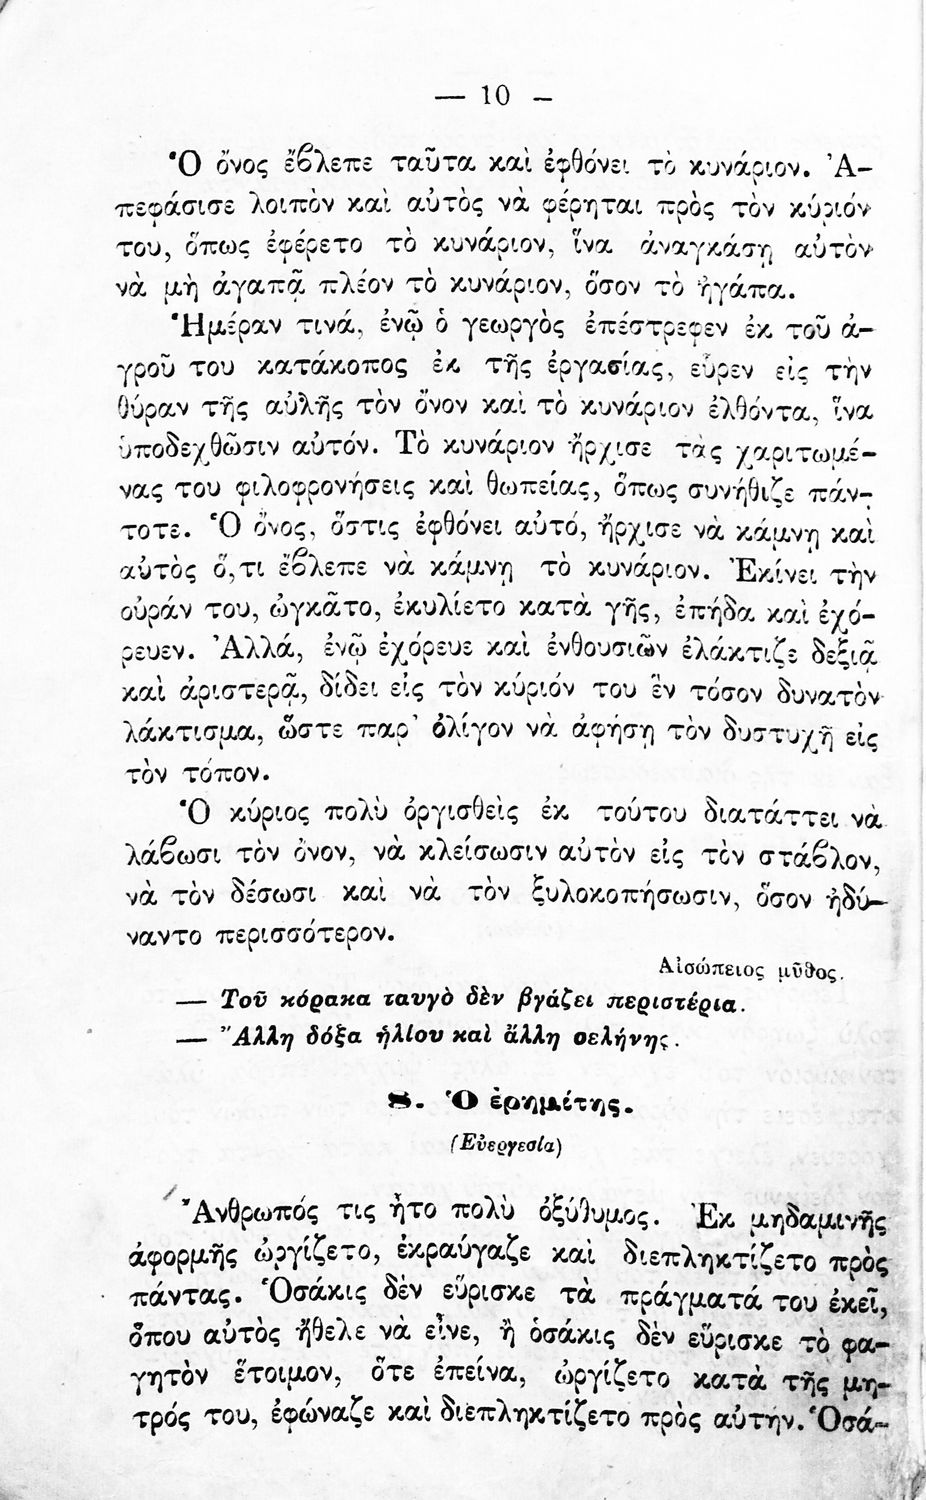 — 10 –
Ὁ ὄνος ἔβλεπε ταῦτα καὶ ἐφθόνει τὸ κυνάριον. Ἀ-
πεφάσισε λοιπὸν καὶ αὐτὸς νὰ φέρηται πρὸς τὸν κύριόν
του, ὅπως ἐφέρετο τὸ κυνάριον, ἵνα ἀναγκάσῃ αὐτὸν
νὰ μὴ ἀγαπᾷ πλέον τὸ κυνάριον, ὅσον τὸ ἠγάπα.
Ἡμέραν τινά, ἐνῷ ὁ γεωργὸς ἐπέστρεφεν ἐκ τοῦ ἀ-
γροῦ του κατάκοπος ἐκ τῆς ἐργασίας, εὗρεν εἰς τὴν
θύραν τῆς αὐλῆς τὸν ὄνον καὶ τὸ κυνάριον ἐλθόντα, ἵνα
ὑποδεχθῶσιν αὐτόν. Τὸ κυνάριον ἤρχισε τὰς χαριτωμέ-
νας του φιλοφρονήσεις καὶ θωπείας, ὅπως συνήθιζε πάν-
τοτε. Ὁ ὄνος, ὅστις ἐφθόνει αὐτό, ἤρχισε νὰ κάμνῃ καὶ
αὐτὸς ὅ,τι ἔβλεπε νὰ κάμνῃ τὸ κυνάριον. Ἐκίνει τὴν
οὐράν του, ὠγκᾶτο, ἐκυλίετο κατὰ γῆς, ἐπήδα καὶ ἐχό-
ρευεν. Ἀλλά, ἐνῷ ἐχόρευε καὶ ἐνθουσιῶν ἐλάκτιζε δεξιᾷ
καὶ ἀριστερᾷ, δίδει εἰς τὸν κύριόν του ἓν τόσον δυνατὸν
λάκτισμα, ὥστε παρ’ ὀλίγον νὰ ἀφήσῃ τὸν δυστυχῆ εἰς
τὸν τόπον.
Ὁ κύριος πολὺ ὀργισθεὶς ἐκ τούτου διατάττει νὰ
λάβωσι τὸν ὄνον, νὰ κλείσωσιν αὐτὸν εἰς τὸν στάβλον,
νὰ τὸν δέσωσι καὶ νὰ τὸν ξυλοκοπήσωσιν, ὅσον ἠδύ-
ναντο περισσότερον.
Αἰσώπειος μῦθος.
— Τοῦ κόρακα ταυγὸ δὲν βγάζει περιστέρια.
— Ἄλλη δόξα ἡλίου καὶ ἄλλη σελήνης.
8. Ὁ ἐρημίτης.
(Εὐεργεσία)
Ἄνθρωπός τις ἦτο πολὺ ὀξύθυμος. Ἐκ μηδαμινῆς
ἀφορμῆς ὠργίζετο, ἐκραύγαζε καὶ διεπληκτίζετο πρὸς
πάντας. Ὁσάκις δὲν εὕρισκε τὰ πράγματά του ἐκεῖ,
ὅπου αὐτὸς ἤθελε νὰ εἶνε, ἢ ὁσάκις δὲν εὕρισκε τὸ φα-
γητὸν ἕτοιμον, ὅτε ἐπείνα, ὠργίζετο κατὰ τῆς μη-
τρός του, ἐφώναζε καὶ διεπληκτίζετο πρὸς αὐτήν. Ὁσά-